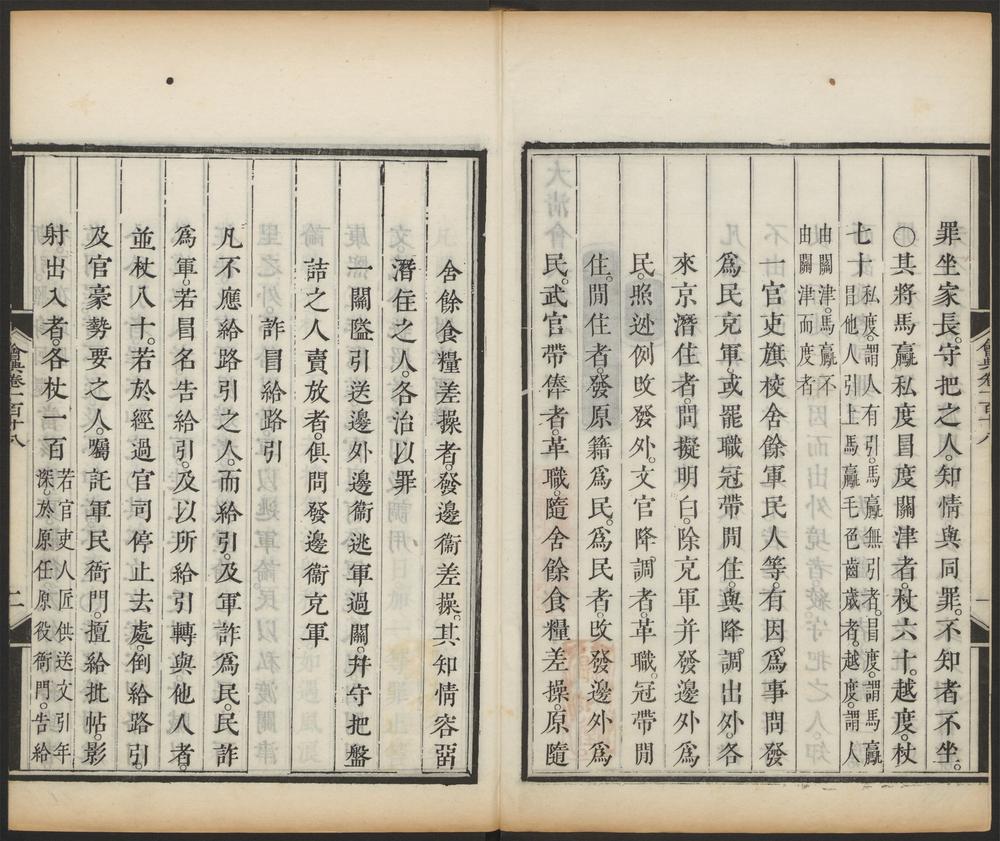 罪坐家長。守把之人。知情與同罪。不知者不坐。
○其將馬驘私度冒度關津者。杖六十。越度。杖
七十私度。謂人有引。馬驘無引者。冒度。謂馬驘
冒他人引上馬驘毛色齒歲者。越度。謂人
由關津。馬驘不
由關津而度者
一官吏旗校舍餘軍民人等。有因。爲事問發
爲民充軍。或罷職冠帶閒住。與降。調出外。各
來京潛住者。問擬明白。除充軍并發邊外爲
民。照逃例改發外。文官降。調者。革職。冠帶閒
住。閒住者。發原籍爲民。爲民者。改發邊外爲
民。武官帶俸者。革職。隨舍餘食糧差操。原隨
會典卷一百十八
一
舍餘食糧差操者。發邊衞差操。其知情容留
潛住之人。各治以罪
一關隘引送邊外邊衞逃軍過關。并守把盤
詰之人賣放者。俱問發邊衞充軍
詐冒給路引
凡不應給路引之人。而給引。及軍詐爲民。民詐
爲軍。若冒名告給引。及以所給引轉與他人者。
並杖八十。若於經過官司停止去處。倒給路引。
及官豪勢要之人。囑託軍民衙門。擅給批帖。影
射出入者。各杖一百若官吏人匠供送文引年
深。於原任原役衙門。告給
會典卷一百十八
二